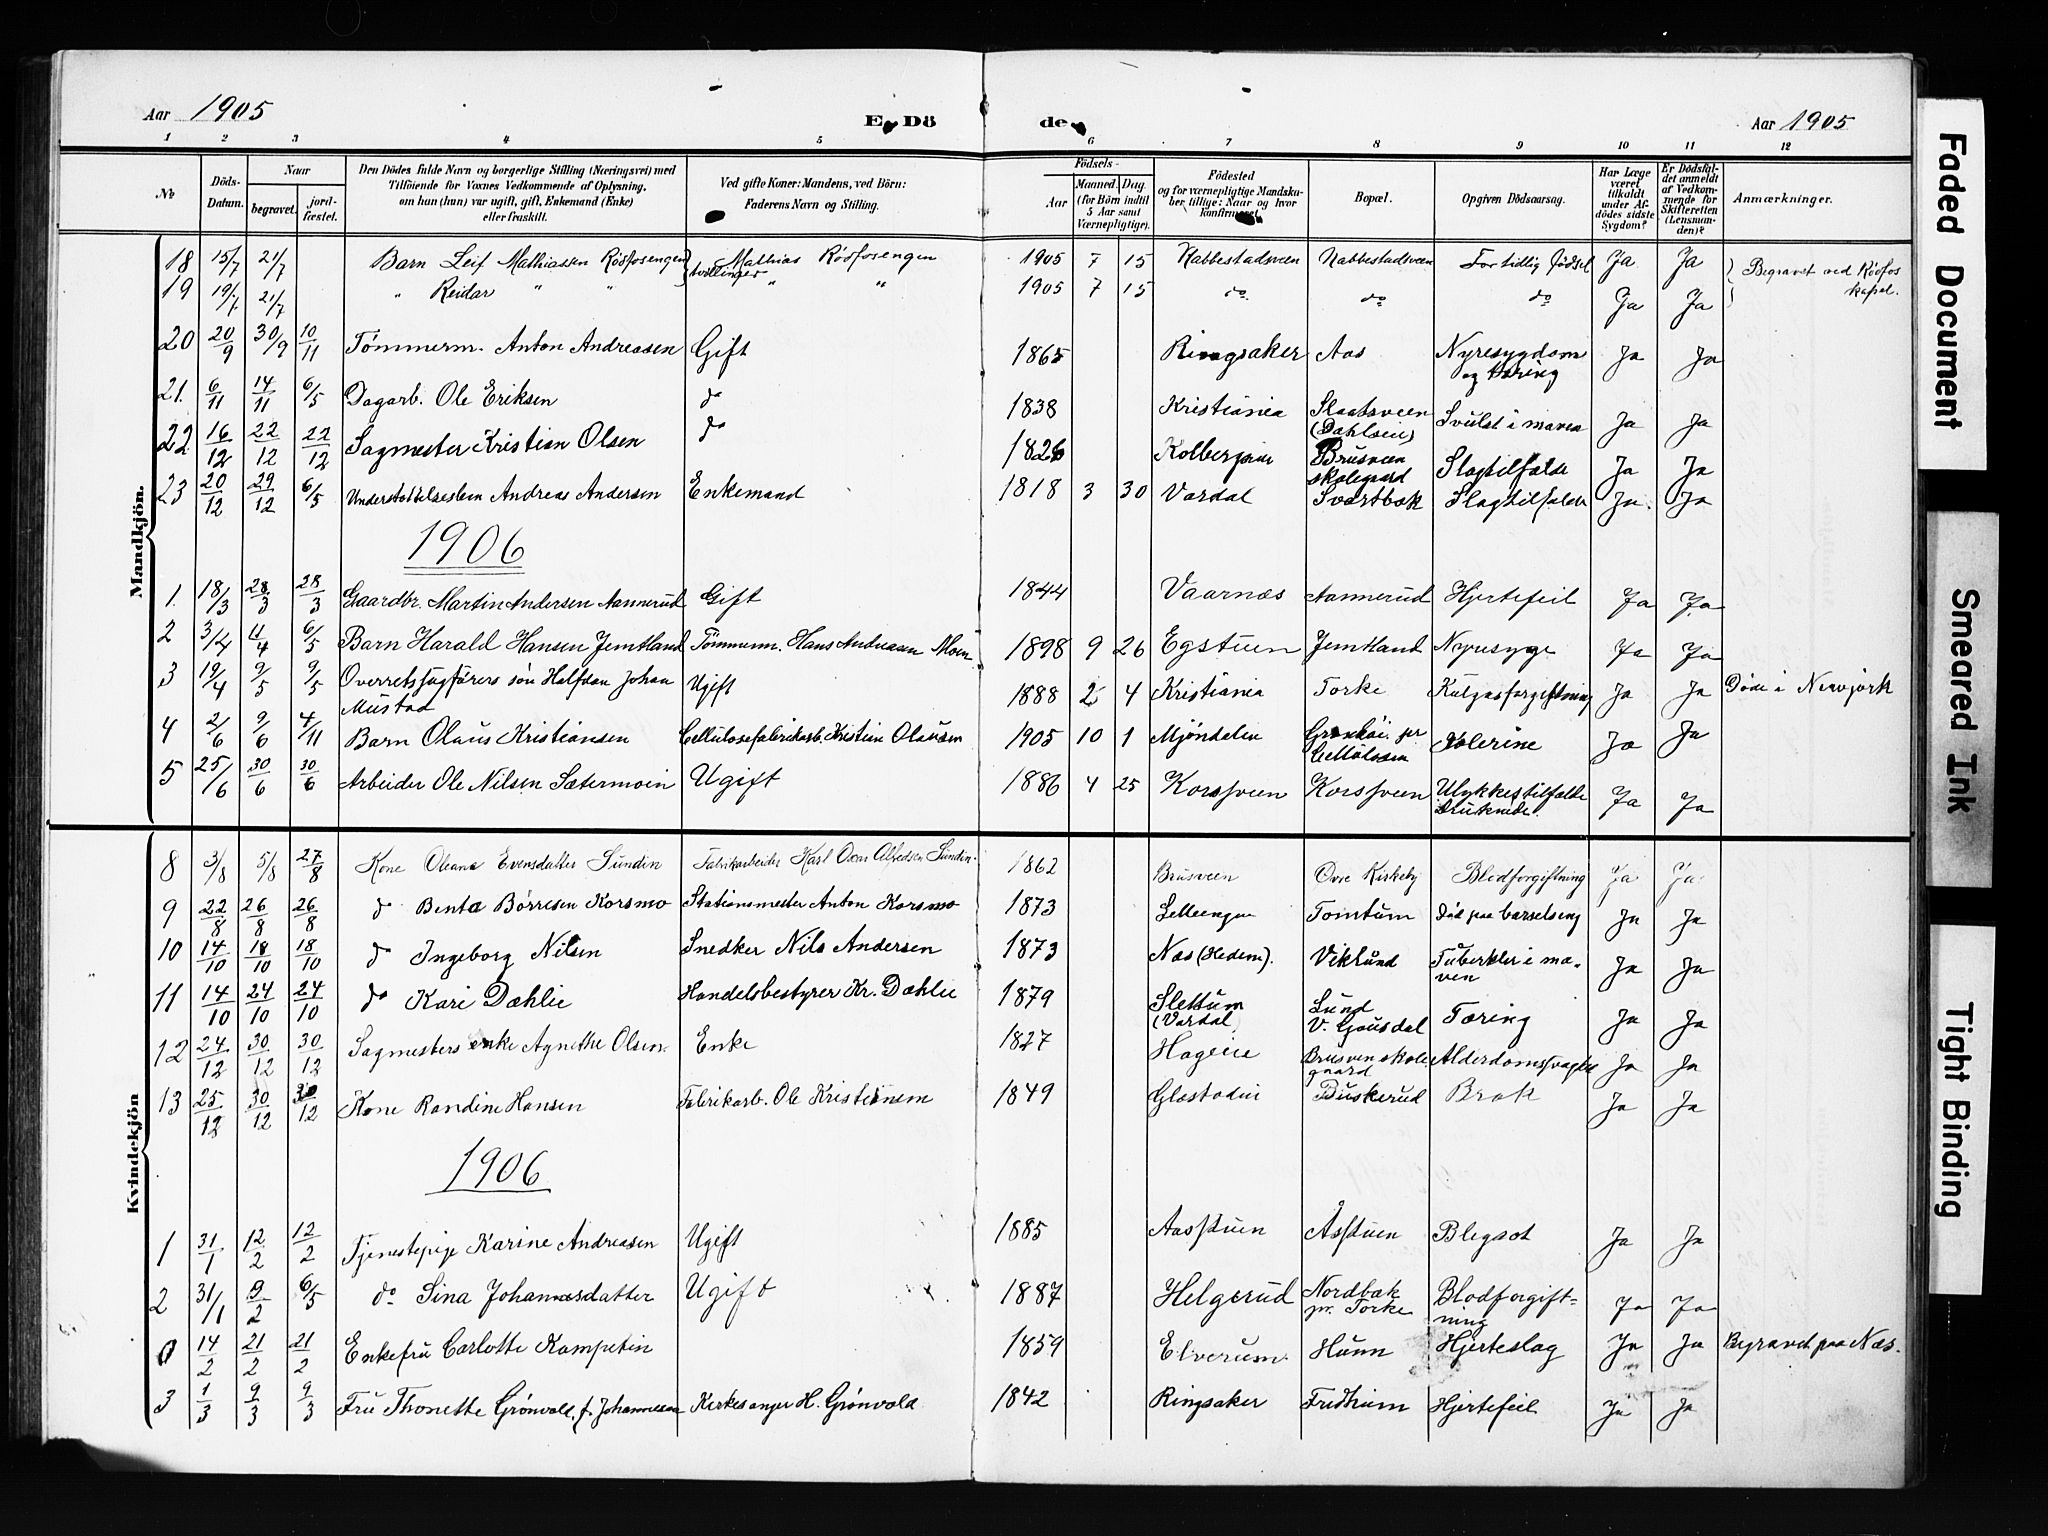 Aar 1905 E. Döde. Aar 1905
1 2 3 4 5 6 7 8 9 10 11 12
No Döds-Datum. Naar begravet. jordfæstet. Den Dödes fulde Navn og borgerlige Stilling (Næringsvei) med Tilföiende for Voxnes Vedkommende af Oplysning, om han (hun) var ugift, gift, Enkemand (Enke) eller fraskilt. Ved gifte Koner: Mandens, ved Börn: Faderens Navn og Stilling. Födsels- Aar Maaned. Dag. (for Börn indtil 5 Aar samt Værnepligtige). Födested og for værnepligtige Mandskaber tillige: Naar og hvor konfirmeret. Bopæl. Opgiven Dödsaarsag. Har Læge været tilkaldt under Afdödes sidste Sygdom? Er Dödsfaldet anmeldt af Vedkommende for Skifteretten (Lensmanden)? Anmærkninger.
Mandkjön.
18 15/7 21/7 Barn Leif Mathiassen Rösfosengen tvillinger Mathias Rösfosengen 1905 7 15 Nabbestadsveen Nabbestadsveen For tidlig födsel Ja Ja Begravet ved Röfos kapel.
19 19/7 21/7 " Reidar " " " " 1905 7 15 do. do do Ja Ja
20 20/9 30/9 10/11 Tømmerm. Anton Andreasen Gift 1865 Ringsaker Aas Nyresygdom og tæring Ja Ja
21. 6/11 14/11 6/5 Dagarb. Ole Eriksen do 1838 Kristiania Slaatsveen (Dahlsein) Svulst i maven Ja Ja
22 16/12 22/12 22/12 Sagmester Kristian Olsen do 1826 Kolbergseie Brusveen skolegaard Slagtilfælde Ja Ja
23 20/12 29/12 6/5 Understøttelseslem Andreas Andersen Enkemand 1818 3 30 Vardal Svartbæk Slagtilfælde Ja. Ja
1906
1. 18/3 28/3 28/3 Gaardbr. Martin Andersen Aannerud Gift 1844 Vaarnæs Aannerud Hjertefeil Ja Ja
2 3/4 11/4 6/5 Barn Harald Hansen Jemtland Tømmerm. Hans Andreasen Moen. 1898 9 26 Egstuen Jemtland Nyresyge Ja Ja
3 19/4 9/5 9/5 Overretssagførers søn Halfdan Johan Mustad Ugift 1888 2 4 Kristiania Torke Kulgasforgiftning Ja Ja Døde i Newjork
4 2/6 9/6 4/11 Barn Olaus Kristiansen Cellulosefabrikarb. Kristian Olausen 1905 10 1 Mjøndalen Grønhøi pr Cellulosen Kolerine Ja Ja
5 25/6 30/6 30/6 Arbeider Ole Nilsen Sætermoin Ugift 1886 4 25 Korssveen Korssveen Ulykkestilfælde Druknede. Ja Ja
Kvindekjön
8 3/8 5/8 27/8 Kone Oleana Evensdatter Sundin Fabrikarbeider Karl Oscar Alfredsen Sundin. 1862 Brusveen Øvre Kirkeby Blodforgiftning Ja Ja
9 22/8 26/8 26/8 do Benta Börresen Korsmo Stationsmester Anton Korsmo 1873 Selleengen Tomtum Död paa barselseng Ja Ja
10 14/10 18/10 18/10 do Ingeborg Nilsen Snedker Nils Andersen 1873 Næs (Hedem). Viklund Tuberkler i maven Ja Ja
11 14/10 24/10 24/10 do Kari Dæhlie Handelsbestyrer Kr. Dæhlie 1879 Slettum (Vardal) Lund V. Gausdal Tæring Ja Ja
12 24/12 30/12 30/12 Sagmesters enke Agnethe Olsen. Enke 1827 Hageeie Brusveen skolegaard Alderdomssvaghed Ja Ja
13 25/12 30/12 30/12 Kone Randine Hansen Fabrikarb. Ole Kristiansen 1849 Glæstadeie Buskerud Brok Ja Ja
1906
1 31/1 12/2 12/2 Tjenestepige Karine Andreasen Ugift 1885 Aasstuen Åsstuen Blegsot Ja Ja
2 31/1 9/2 6/5 do Sina Johannesdatter Ugift 1887 Helgerud Nordbæk pr. Torke Blodforgiftning Ja Ja
0 14/2 21/2 21/2 Enkefru Carlotte Kampetin 1859 Elverum Hunn Hjerteslag Ja Ja Begravet paa Næs.
3 1/3 9/3 9/3 Fru Thonette Grønvold, f. Johannessen Kirkesanger H. Grønvold 1842 Ringsaker Fredheim Hjertefeil Ja Ja
Faded Document
Smeared Ink
Tight Binding